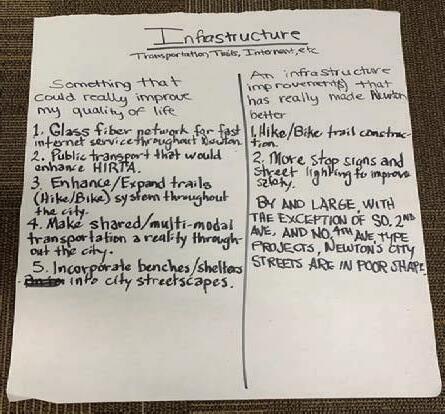 Infrastructure
Transportation, Trails, Internet, etc
Something that
could really improve
my quality of life
1. Glass fiber network for fast
internet service throughout Newton.
2. Public transport that would
enhance HIRTA.
3. Enhance/Expand trails
(Hike/Bike) system throughout
the city.
4. Make shared/multi-modal
transportation a reality through-
out the city.
5. Incorporate benches/shelters
into city streetscapes.
An infrastructure
improvement(s) that
has really made Newton
better
1. Hike/Bike trail construc-
tion.
2. More stop signs and
street lighting to improve
safety.
BY AND LARGE, WITH
THE EXCEPTION OF SO. 2ND
AVE, AND NO. 4TH AVE, TYPE
PROJECTS, NEWTON'S CITY
STREETS ARE IN POOR SHAPE